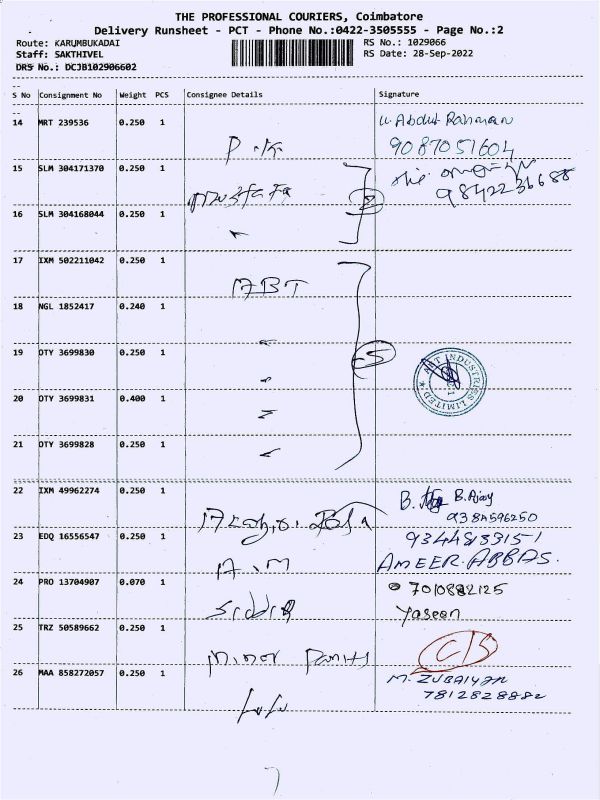 THE PROFESSIONAL COURIERS, Coimbatore
Delivery Runsheet - PCT - Phone No.:0422-3505555 - Page No.:2
Route: KARUMBUKADAI RS No.: 1029066
Staff: SAKTHIVEL RS Date: 28-Sep-2022
DRS No.: DCJB102906602
S No Consignment No Weight PCS Consignee Details Signature
14 MRT 239536 0.250 1 Abdul Rahman
9087051604
15 SLM 304171370 0.250 1
2
16 SLM 304168044 0.250 1
17 IXM 502211042 0.250 1 ABT
18 NGL 1852417 0.240 1
19 OTY 3699830 0.250 1 5
INDUSTRIES LIMITED
20 OTY 3699831 0.400 1
21 OTY 3699828 0.250 1
22 IXM 49962274 0.250 1 B. B. Ajay
9384596250
23 EDQ 16556547 0.250 1 A.M
AMEER.ABBAS.
24 PRO 13704907 0.070 1 Siddiq 7010882125
Yaseen
25 TRZ 50589662 0.250 1
26 MAA 858272057 0.250 1 M. ZUBAIYAR
7812828882